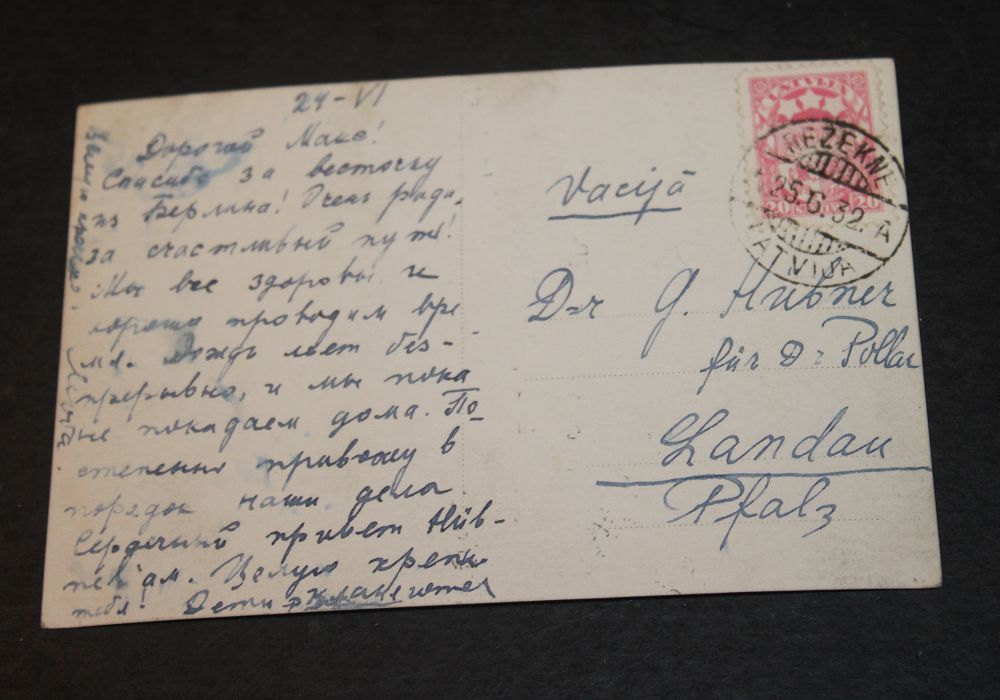 24-VI
Дорогой Макс!
Спасибо за весточку
из Берлина! Очень рада,
за счастливый путь!
Мы все здоровы и
хорошо проводим вре-
мя. Дождь льет без-
прерывно, и мы пока
не покидаем дома. По-
степенно привожу в
порядок наши дела.
Сердечный привет Hüb-
ner'ам. Целую крепко
тебя! Дети
LATVIJA
20 20
REZEKNE
25.6.32. A
LATVIJA
Vacijā
Dr G. Hübner
für Dr Pollac
Landau
Pfalz